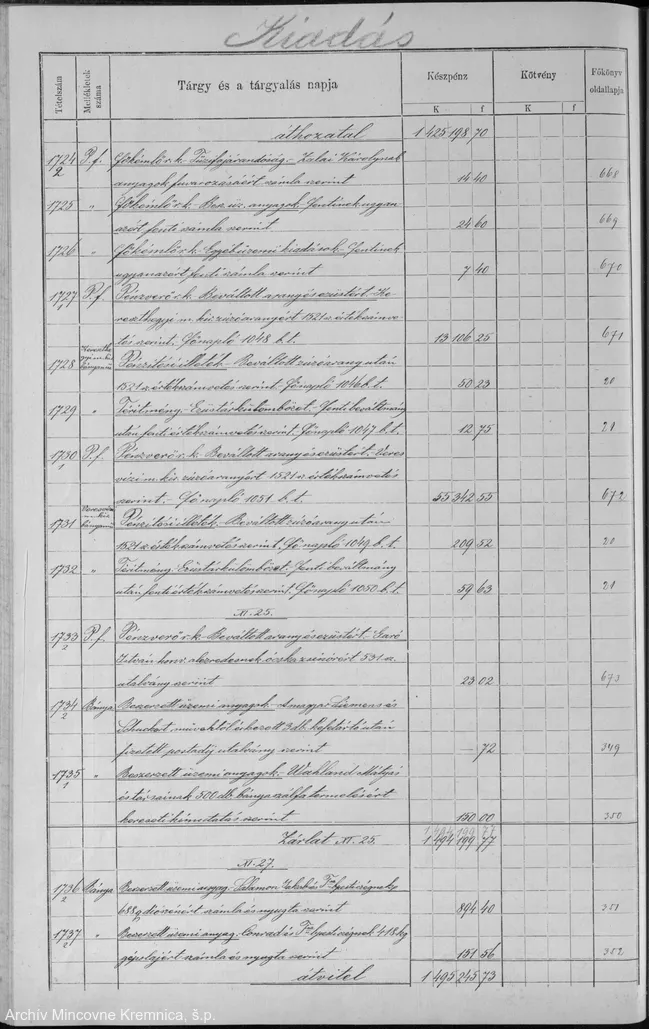 Kiadás
Tételszám
Mellékletek száma
Tárgy és a tárgyalás napja
Készpénz
Kötvény
Főkönyv oldallapja
K f K f
áthozatal 1 425 198 70
1724/2 P.f. Főkémlő r.k. Tűzifajárandóság.- Zalai Károlynak
anyagok fuvarozásáért számla szerint 14 40 668
1725 " Főkémlő r.k. Besz. üz. anyagok. Fentinek ugyan-
azért fenti számla szerint 24 60 669
1726 " Főkémlő r.k. Egyéb üzemi kiadások.- Fentinek
ugyanazért fenti számla szerint 7 40 670
1727/1 P.f. Pénzverő r.k. Beváltott arany és ezüstért.- Ke-
reszthegyi m. kir. zúzóaranyért 1521 sz. értékszámve-
tés szerint. Főnapló 1048 b.t. 13 106 25 671
1728 Pénzítési illeték.- Beváltott zúzóarany után
1521 sz. értékszámvetés szerint. Főnapló 1046 b.t. 50 23 20
1729 " Térítmény.- Ezüstárkülömbözet.- Fenti beváltmány
után fenti értékszámvetés szerint. Főnapló 1047 b.t. 12 75 21
1730/1 P.f. Pénzverő r.k. Beváltott arany és ezüstért.- Veres-
vizi m. kir. zúzóaranyért 1521 sz. értékszámvetés
szerint.- Főnapló 1051 b.t. 55 342 55 672
1731 Pénzítési illeték.- Beváltott zúzóarany után
1521 sz. értékszámvetés szerint. Főnapló 1049 b.t. 209 52 20
1732 " Térítmény.- Ezüstárkülömbözet.- Fenti beváltmány
után fenti értékszámvetés szerint. Főnapló 1050 b.t. 59 63 21
XI. 25.
1733/2 P.f. Pénzverő r.k. Beváltott arany és ezüstért.-
István alezredesnek 531 sz.
utalvány szerint 23 02 673
1734/2 Bánya Beszerzett üzemi anyagok.- A magyar Siemens és
Schuckert művektől érkezett 3 db. kefetartó után
fizetett postadíj utalvány szerint 72 349
1735/1 " Beszerzett üzemi anyagok.- Mátyás
és társainak 500 db. bánya szálfa termelésért
kereseti kimutatás szerint 150 00 350
1 494 199 77
Zárlat XI. 25. 1 494 199 77
XI. 27.
1736/2 Bánya Beszerzett üzemi anyag.- Salamon Jakab és Fia
688 q. számla és nyugta szerint 894 40 351
1737/2 " Beszerzett üzemi anyag. Conrad és Fia 418 kg
gépolajért számla és nyugta szerint 151 56 352
átvitel 1 495 245 73
Archív Mincovne Kremnica, š.p.